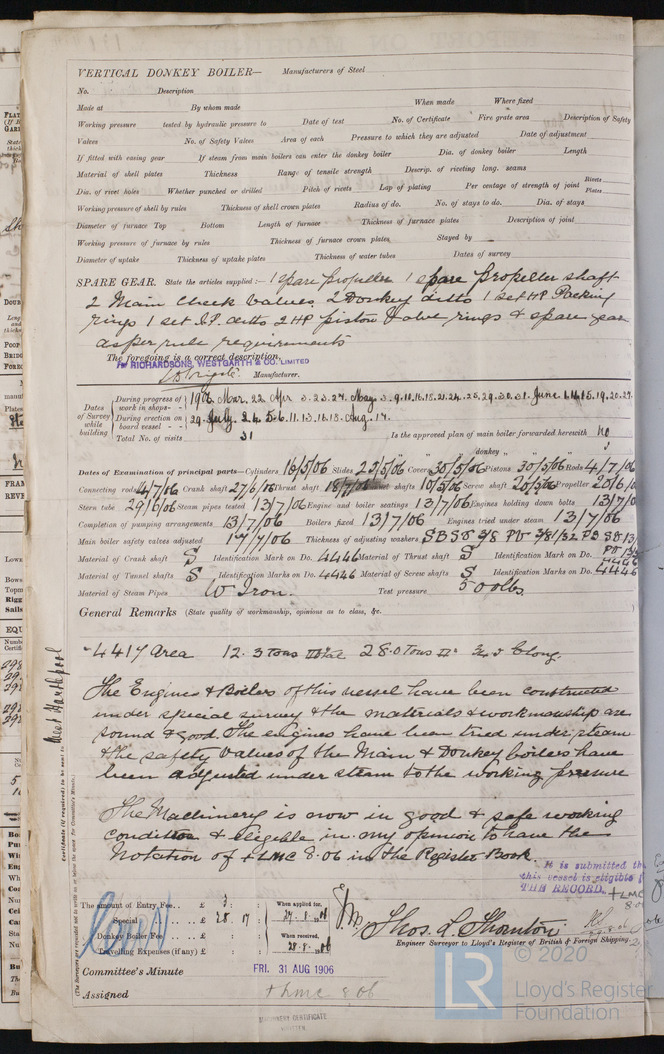 VERTICAL DONKEY BOILER— Manufacturers of Steel
No. Description
Made at By whom made When made Where fixed
Working pressure tested by hydraulic pressure to Date of test No. of Certificate Fire grate area Description of Safety
Valves No. of Safety Valves Area of each Pressure to which they are adjusted Date of adjustment
If fitted with easing gear If steam from main boilers can enter the donkey boiler Dia. of donkey boiler Length
Material of shell plates Thickness Range of tensile strength Descrip. of riveting long. seams
Dia. of rivet holes Whether punched or drilled Pitch of rivets Lap of plating Per centage of strength of joint Rivets Plates
Working pressure of shell by rules Thickness of shell crown plates Radius of do. No. of stays to do. Dia. of stays
Diameter of furnace Top Bottom Length of furnace Thickness of furnace plates Description of joint
Working pressure of furnace by rules Thickness of furnace crown plates Stayed by
Diameter of uptake Thickness of uptake plates Thickness of water tubes Dates of survey
SPARE GEAR. State the articles supplied:— 1 spare propeller 1 spare propeller shaft
2 Main Check Valves, 2 Donkey ditto 1 set HP Packing
rings 1 set I.P. ditto 2 HP piston Valve rings & spare gear
as per rule requirements
The foregoing is a correct description,
for RICHARDSONS, WESTGARTH & CO. LIMITED
Manufacturer.
Dates of Survey while building
During progress of work in shops- - 1906 Mar. 22 Apr 3. 23. 27. May 3. 9. 10. 16. 18. 21. 24. 25. 29. 30. 31. June 1. 14. 15. 19. 20. 27.
During erection on board vessel - - 29. July. 2. 4. 5. 6. 11. 13. 16. 18. Aug. 17.
Total No. of visits 31 Is the approved plan of main boiler forwarded herewith no
" " " donkey " " "
Dates of Examination of principal parts—Cylinders 16/5/06 Slides 22/5/06 Covers 30/5/06 Pistons 30/5/06 Rods 4/7/06
Connecting rods 4/7/06 Crank shaft 27/6/06 Thrust shaft 18/7/06 shafts 10/5/06 Screw shaft 20/5/06 Propeller 20/6/0
Stern tube 29/6/06 Steam pipes tested 13/7/06 Engine and boiler seatings 13/7/06 Engines holding down bolts 13/7/0
Completion of pumping arrangements 13/7/06 Boilers fixed 13/7/06 Engines tried under steam 13/7/06
Main boiler safety valves adjusted 17/7/06 Thickness of adjusting washers SB SV 3/8 PV 3/8 1/32 PB SV 13/
PV 13/
Material of Crank shaft S Identification Mark on Do. 4446 Material of Thrust shaft S Identification Mark on Do. 4446
Material of Tunnel shafts S Identification Marks on Do. 4446 Material of Screw shafts S Identification Marks on Do. 4446
Material of Steam Pipes W Iron. Test pressure 500 lbs.
General Remarks (State quality of workmanship, opinions as to class, &c.
4417 area 12.3 Tons 28.0 Tons
The Engines & Boilers of this vessel have been constructed
under special survey & the materials & workmanship are
sound & good. The engines have been tried under steam
& the safety valves of the Main & Donkey boilers have
been adjusted under steam to the working pressure
The Machinery is now in good & safe working
condition & eligible in my opinion to have the
notation of +LMC 8.06 in the Register Book.
It is submitted th
this vessel is eligible f
THE RECORD. +LMC
8.0
West Hartlepool
Certificate (if required) to be sent to
(The Surveyors are requested not to write on or below the space for Committee's Minute.)
The amount of Entry Fee.. £ 3 : : When applied for,
Special .. £ 28 : 17 : 27.8.1906
Donkey Boiler Fee .. £ : : When received,
Travelling Expenses (if any) £ : : 28.8.1906
Thos. L. Thornton
Engineer Surveyor to Lloyd's Register of British & Foreign Shipping.
Committee's Minute FRI. 31 AUG 1906
Assigned + Lmc 8.06
MACHINERY CERTIFICATE
WRITTEN.
© 2020
LR Lloyd's Register
Foundation